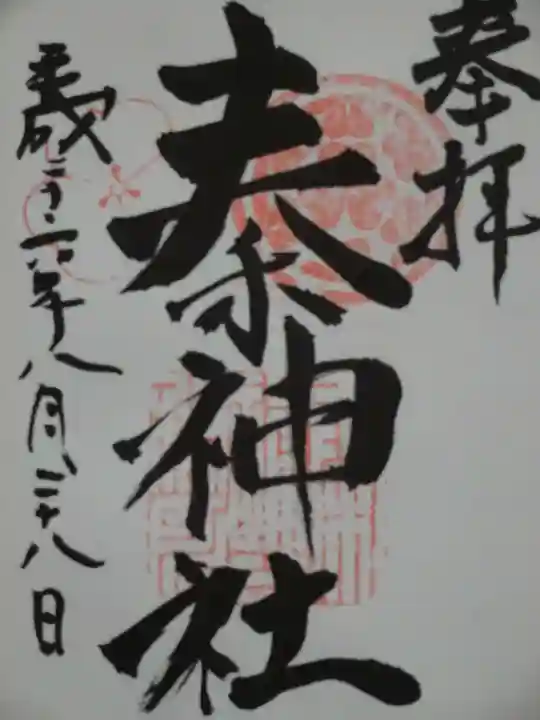 奉拝
秦神社
平成二十六年八月二十八日